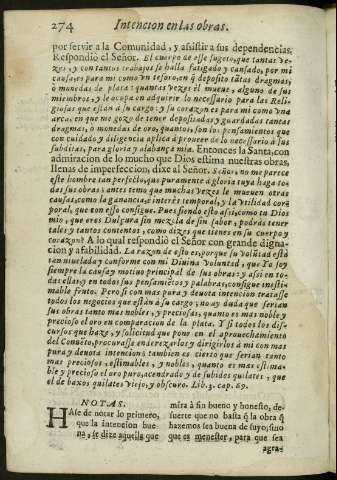 274 Intencion en las obras.
por servir a la Comunidad, y assistir a sus dependencias.
Respondiò el Señor. El cuerpo de esse sugeto, que tantas ve-
zes, y con tantos trabajos se halla fatigado y cansado, por mi
causa, es para mi como vn tesoro, en q̃ deposito tãtas dragmas,
ò monedas de plata: quantas vezes èl mueve, alguno de sus
miembros, y le ocupa en adquirir lo necessario para las Reli-
giosas que estàn à su cargo: y su coraçon es para mi como vna
arca, en que me gozo de tener depositadas y guardadas tantas
dragmas, ò monedas de oro, quantos, son los pensamientos que
con cuidado y diligencia aplica à proveer de lo necessario à sus
subditas, para gloria y alabança mia. Entonces la Santa, con
admiracion de lo mucho que Dios estima nuestras obras,
llenas de imperfeccion, dixe al Señor. Señor, no me parece
este hombre tan perfecto, que puramente à gloria tuya haga to-
das sus obras: antes temo que muchas vezes le mueven otras
causas, como la ganancia, è interès temporal, y la vtilidad cor-
poral, que con esso consigue. Pues siendo esto assi, como tu Dios
mio, que eres Dulçura sin mezcla de sin sabor, podràs tener
tales y tantos contentos, como dizes que tienes en su cuerpo y
coraçon? A lo qual respondiò el Señor con grande digna-
cion y afabilidad. La razon de esto es, porque su volũtad està
tan nivelada y conforme con mi Divina Voluntad, que Yo soy
siempre la causa y motivo principal de sus obras: y assi en to-
das ellas, y en todos sus pensamiẽtos y palabras, consigue inesti-
mable fruto. Pero si con mas pura y devota intencion tratasse
todos los negocios que estàn à su cargo; no ay duda que serian
sus obras tanto mas nobles, y preciosas, quanto es mas noble y
precioso el oro en comparacion de la plata. Y si todos los dis-
cursos que haze, y solicitud que pone en el aprovechamiento
del Convẽto, procurasse endereçarlos y dirigirlos à mi con mas
pura y devota intencion; tambien es cierto que serian tanto
mas preciosos, estimables, y nobles, quanto es mas estima-
ble y precioso el oro puro, acendrado y de subidos quilates, que
el de baxos quilates viejo, y obscuro. Lib. 3. cap. 69.
NOTAS.
HAse de notar lo primero,
que la intencion bue
na, se dize aquella que
mira à fin bueno y honesto, de-
suerte que no basta q̃ la obra q̃
hazemos sea buena de suyo; sino
que es menester, para que sea
agra-